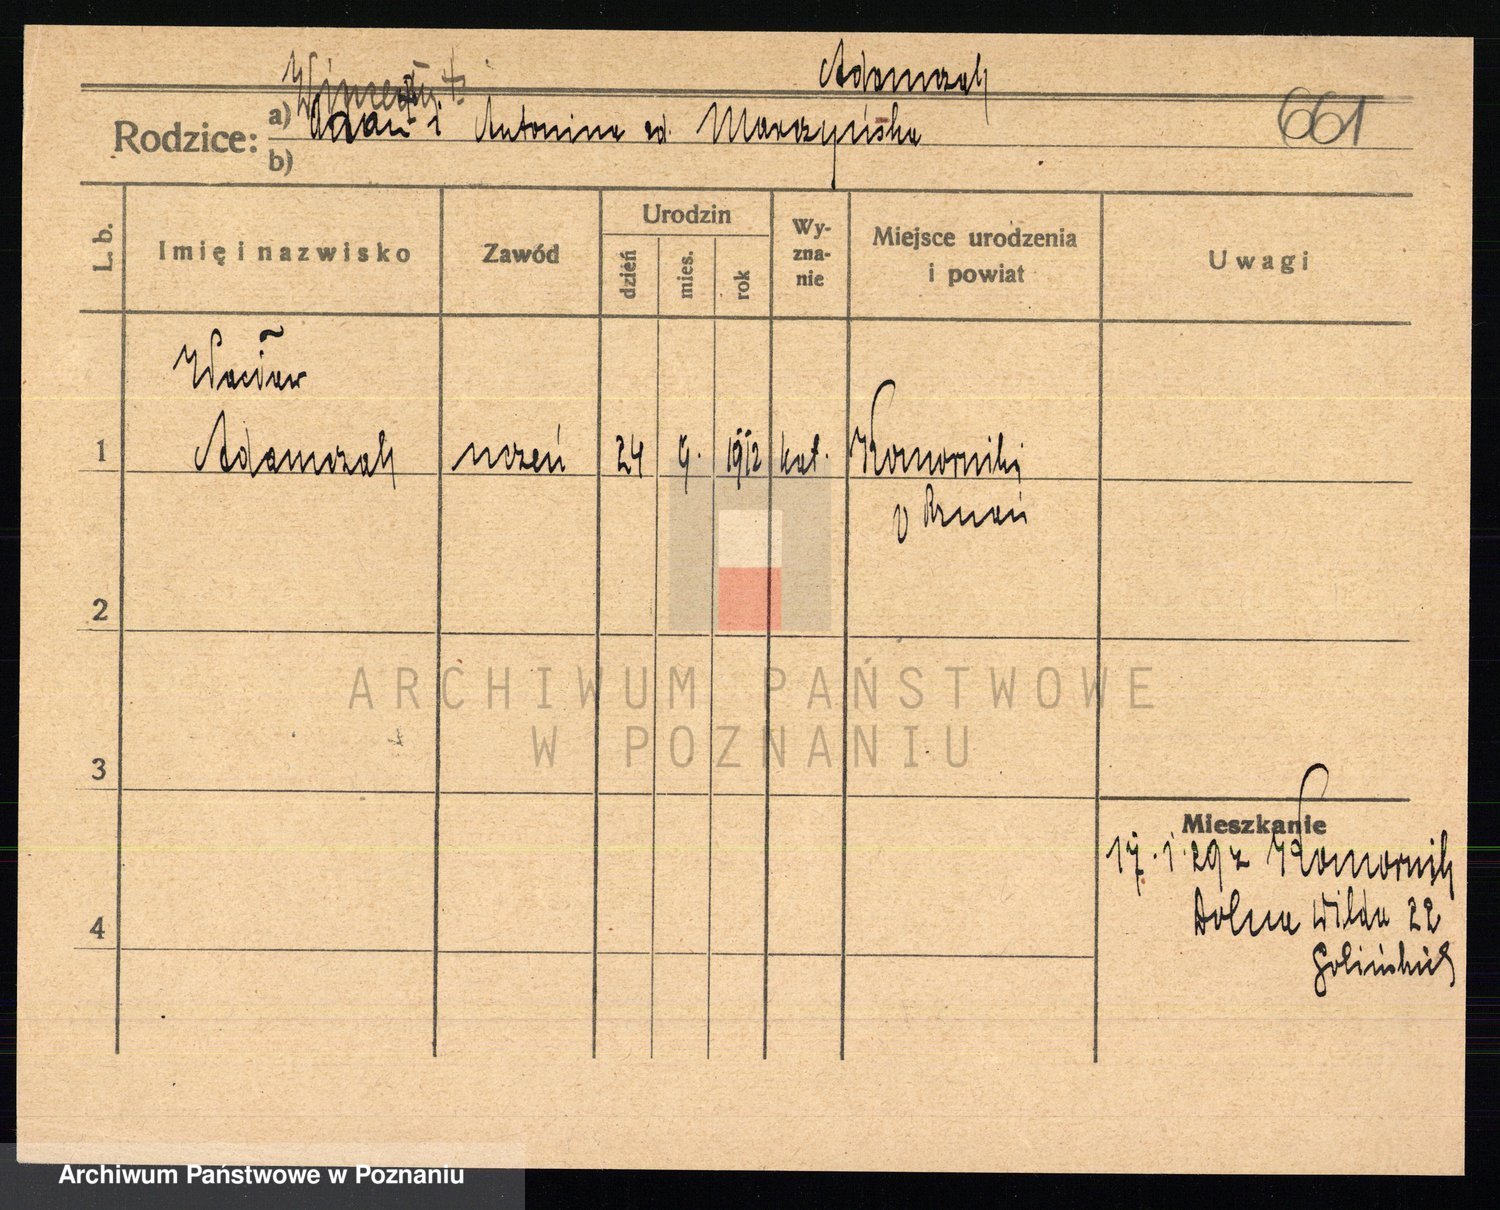 Adamczak
Wincenty +
Rodzice: a) Jan i Antonina zd. Marczyńska
661
b)
L. b. Imię i nazwisko Zawód Urodzin dzień mies. rok Wy-zna-nie Miejsce urodzenia i powiat Uwagi
Wacław
1 Adamczak uczeń 24 9. 1912 kat. Komorniki
p Poznań
2
ARCHIWUM PAŃSTWOWE
W POZNANIU
3
Mieszkanie
17. 1. 29 z Komornik
4 Dolna Wilda 22
Archiwum Państwowe w Poznaniu